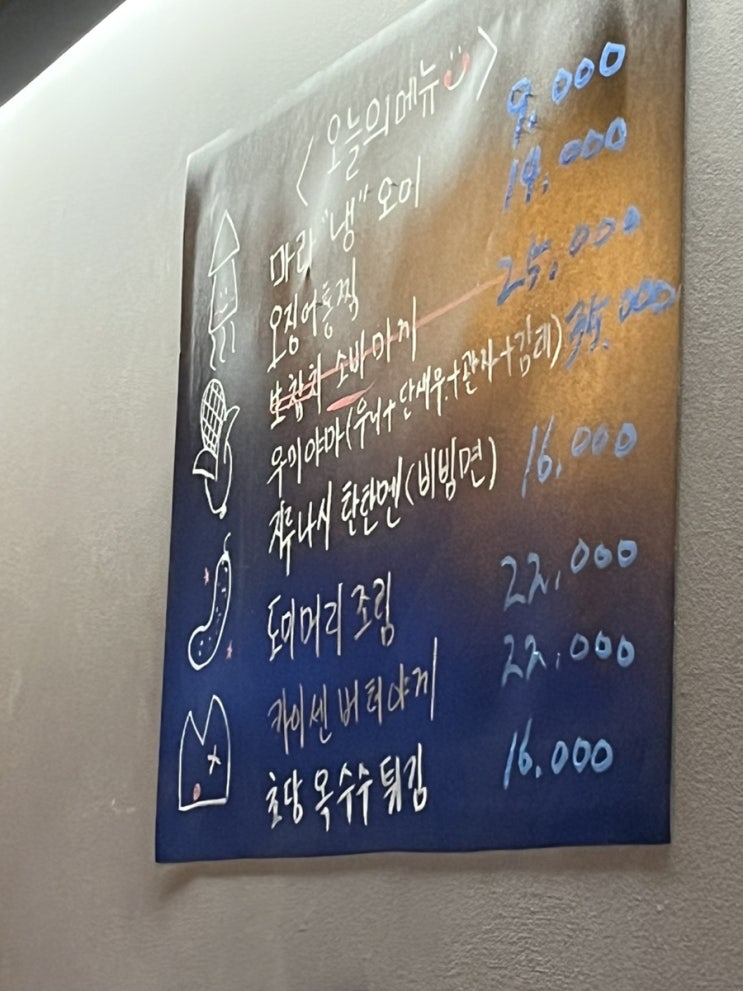 <오늘의메뉴>
마라 "냉" 오이 9.000
오징어통찜 19.000
보참치 소바마끼 25,000
우미야마(우니+단새우+관자+감태) 35.000
지루나시 탄탄멘(비빔면) 16.000
도미머리조림 22.000
카이센 버터야끼 22.000
초당 옥수수 튀김 16.000